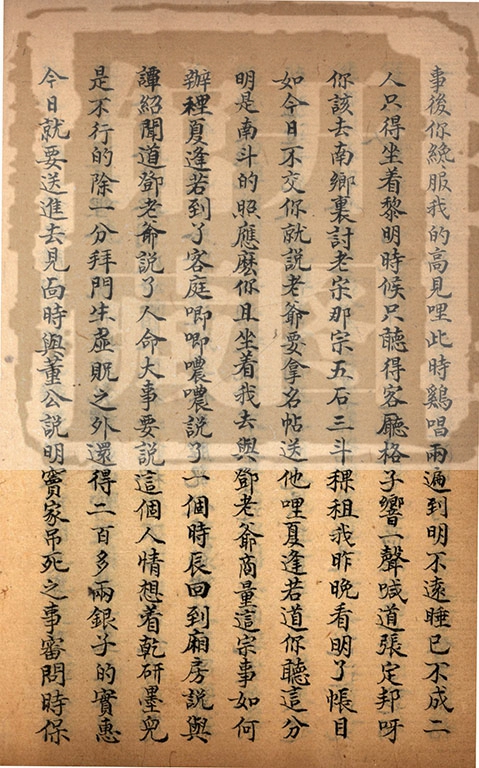 事後你纔服我的高見哩此時鷄唱兩遍到明不遠睡已不成二
人只得坐着黎明時候只聽得客廳格子響一聲喊道張定邦呀
你該去南鄉裏討老宗那宗五石三斗稞租我昨晚看明了帳目
如今日不交你就説老爺要拿名帖送他哩夏逢若道你聽這分
明是南斗的照應麽你且坐着我去與鄧老爺商量這宗事如何
辦裡夏逢若到了客庭唧唧噥噥説了一個時辰回到廂房説與
譚紹聞道鄧老爺説了人命大事要説這個人情想着乾研墨兒
是不行的除一分拜門生虛貺之外還得二百多兩銀子的實惠
今日就要送進去見面時與董公説明竇家吊死之事審問時保